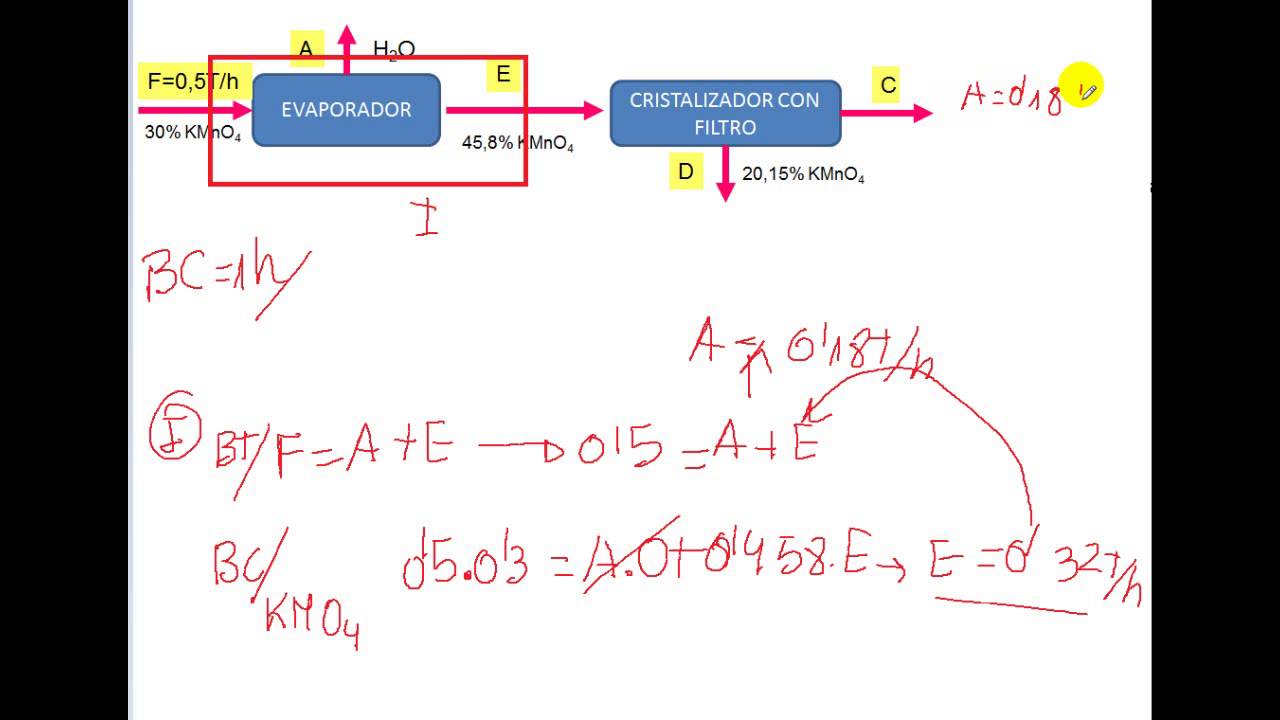 A H₂O
F=0,5T/h
E
EVAPORADOR
30% KMnO₄
45,8% KMnO₄
CRISTALIZADOR CON
FILTRO
C
A=0'18
D
20,15% KMnO₄
I
BC=1h/
A = 0'18T/h
I BT/ F=A+E → 0'5=A+E
BC/ 0'5.0'3 = A.0+0'458.E → E=0'32T/h
KMO₄